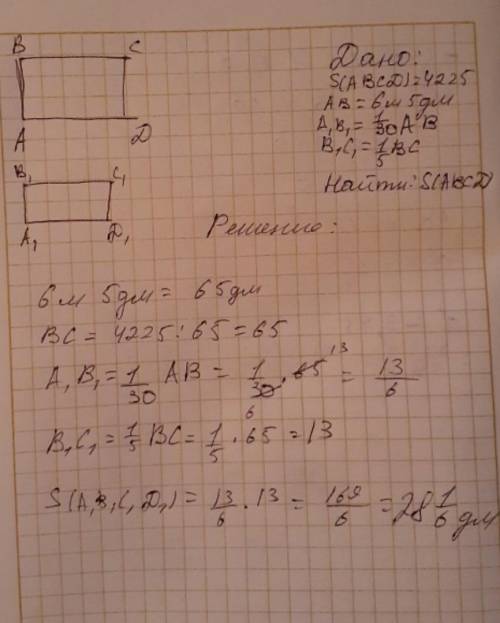 B C
A D
B₁ C₁
A₁ D₁
Дано:
S(ABCD)=4225
AB = 6м 5дм
A₁B₁ = 1/30 AB
B₁C₁ = 1/5 BC
Найти: S(ABCD)
Решение:
6м 5дм = 65дм
BC = 4225 : 65 = 65
A₁B₁ = 1/30 AB = 1/30 · 65 = 13/6
6 13
B₁C₁ = 1/5 BC = 1/5 · 65 = 13
S(A₁B₁C₁D₁) = 13/6 · 13 = 169/6 = 28 1/6 дм